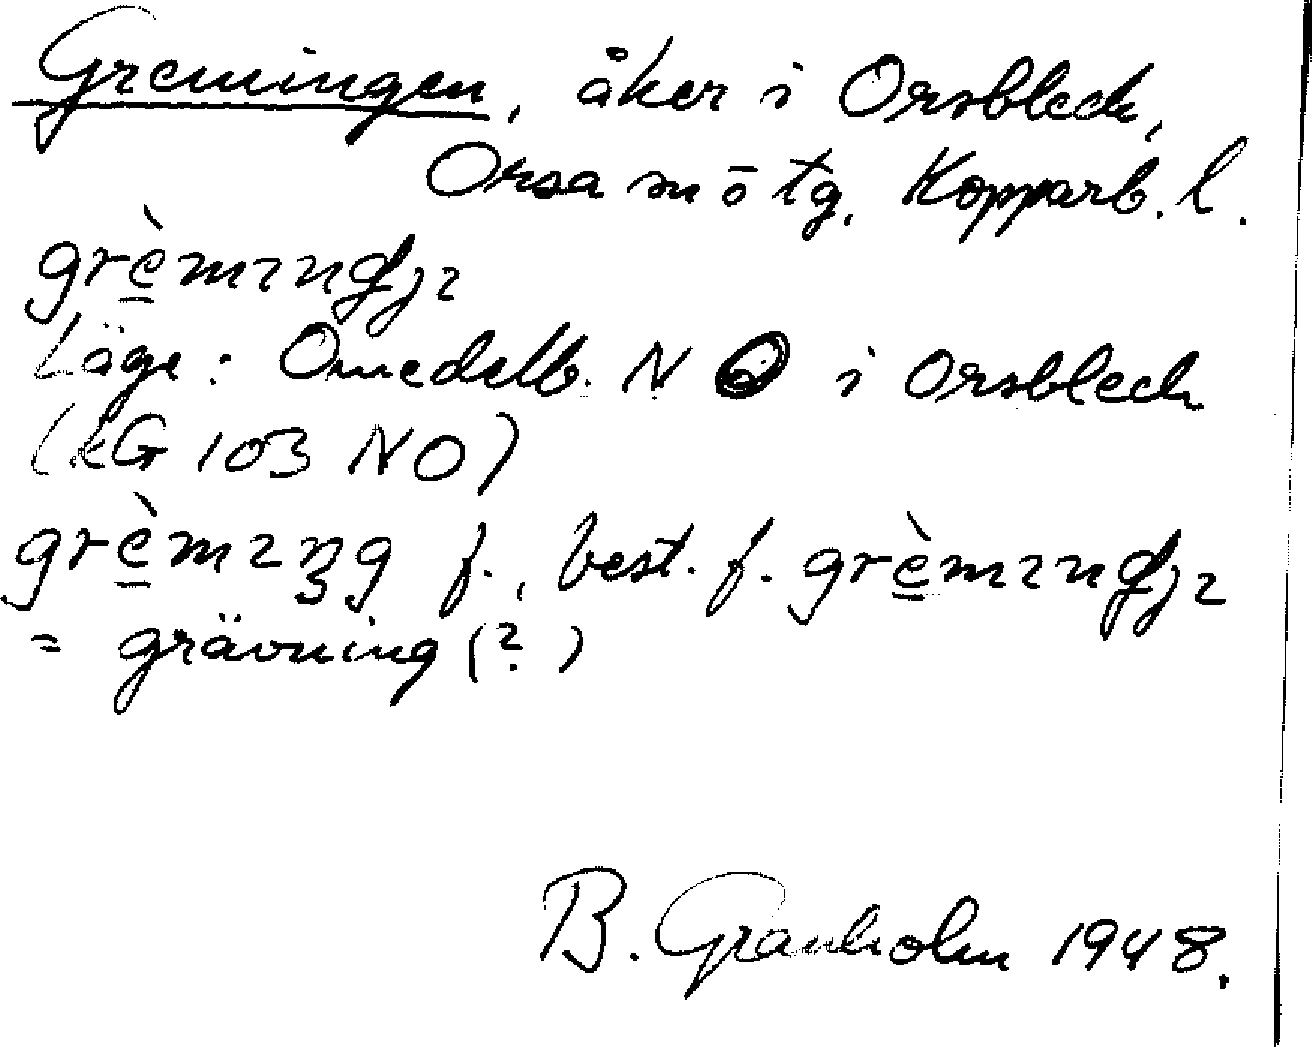 Gremingen, åker i Orsbleck,
Orsa sn ō tg. Kopparb. l.
grè̱mıng
Läge: Omedelb. N O i Orsbleck
(kG 103 NO)
f., best. f.
= grävning (?)
B. Granholm 1948.